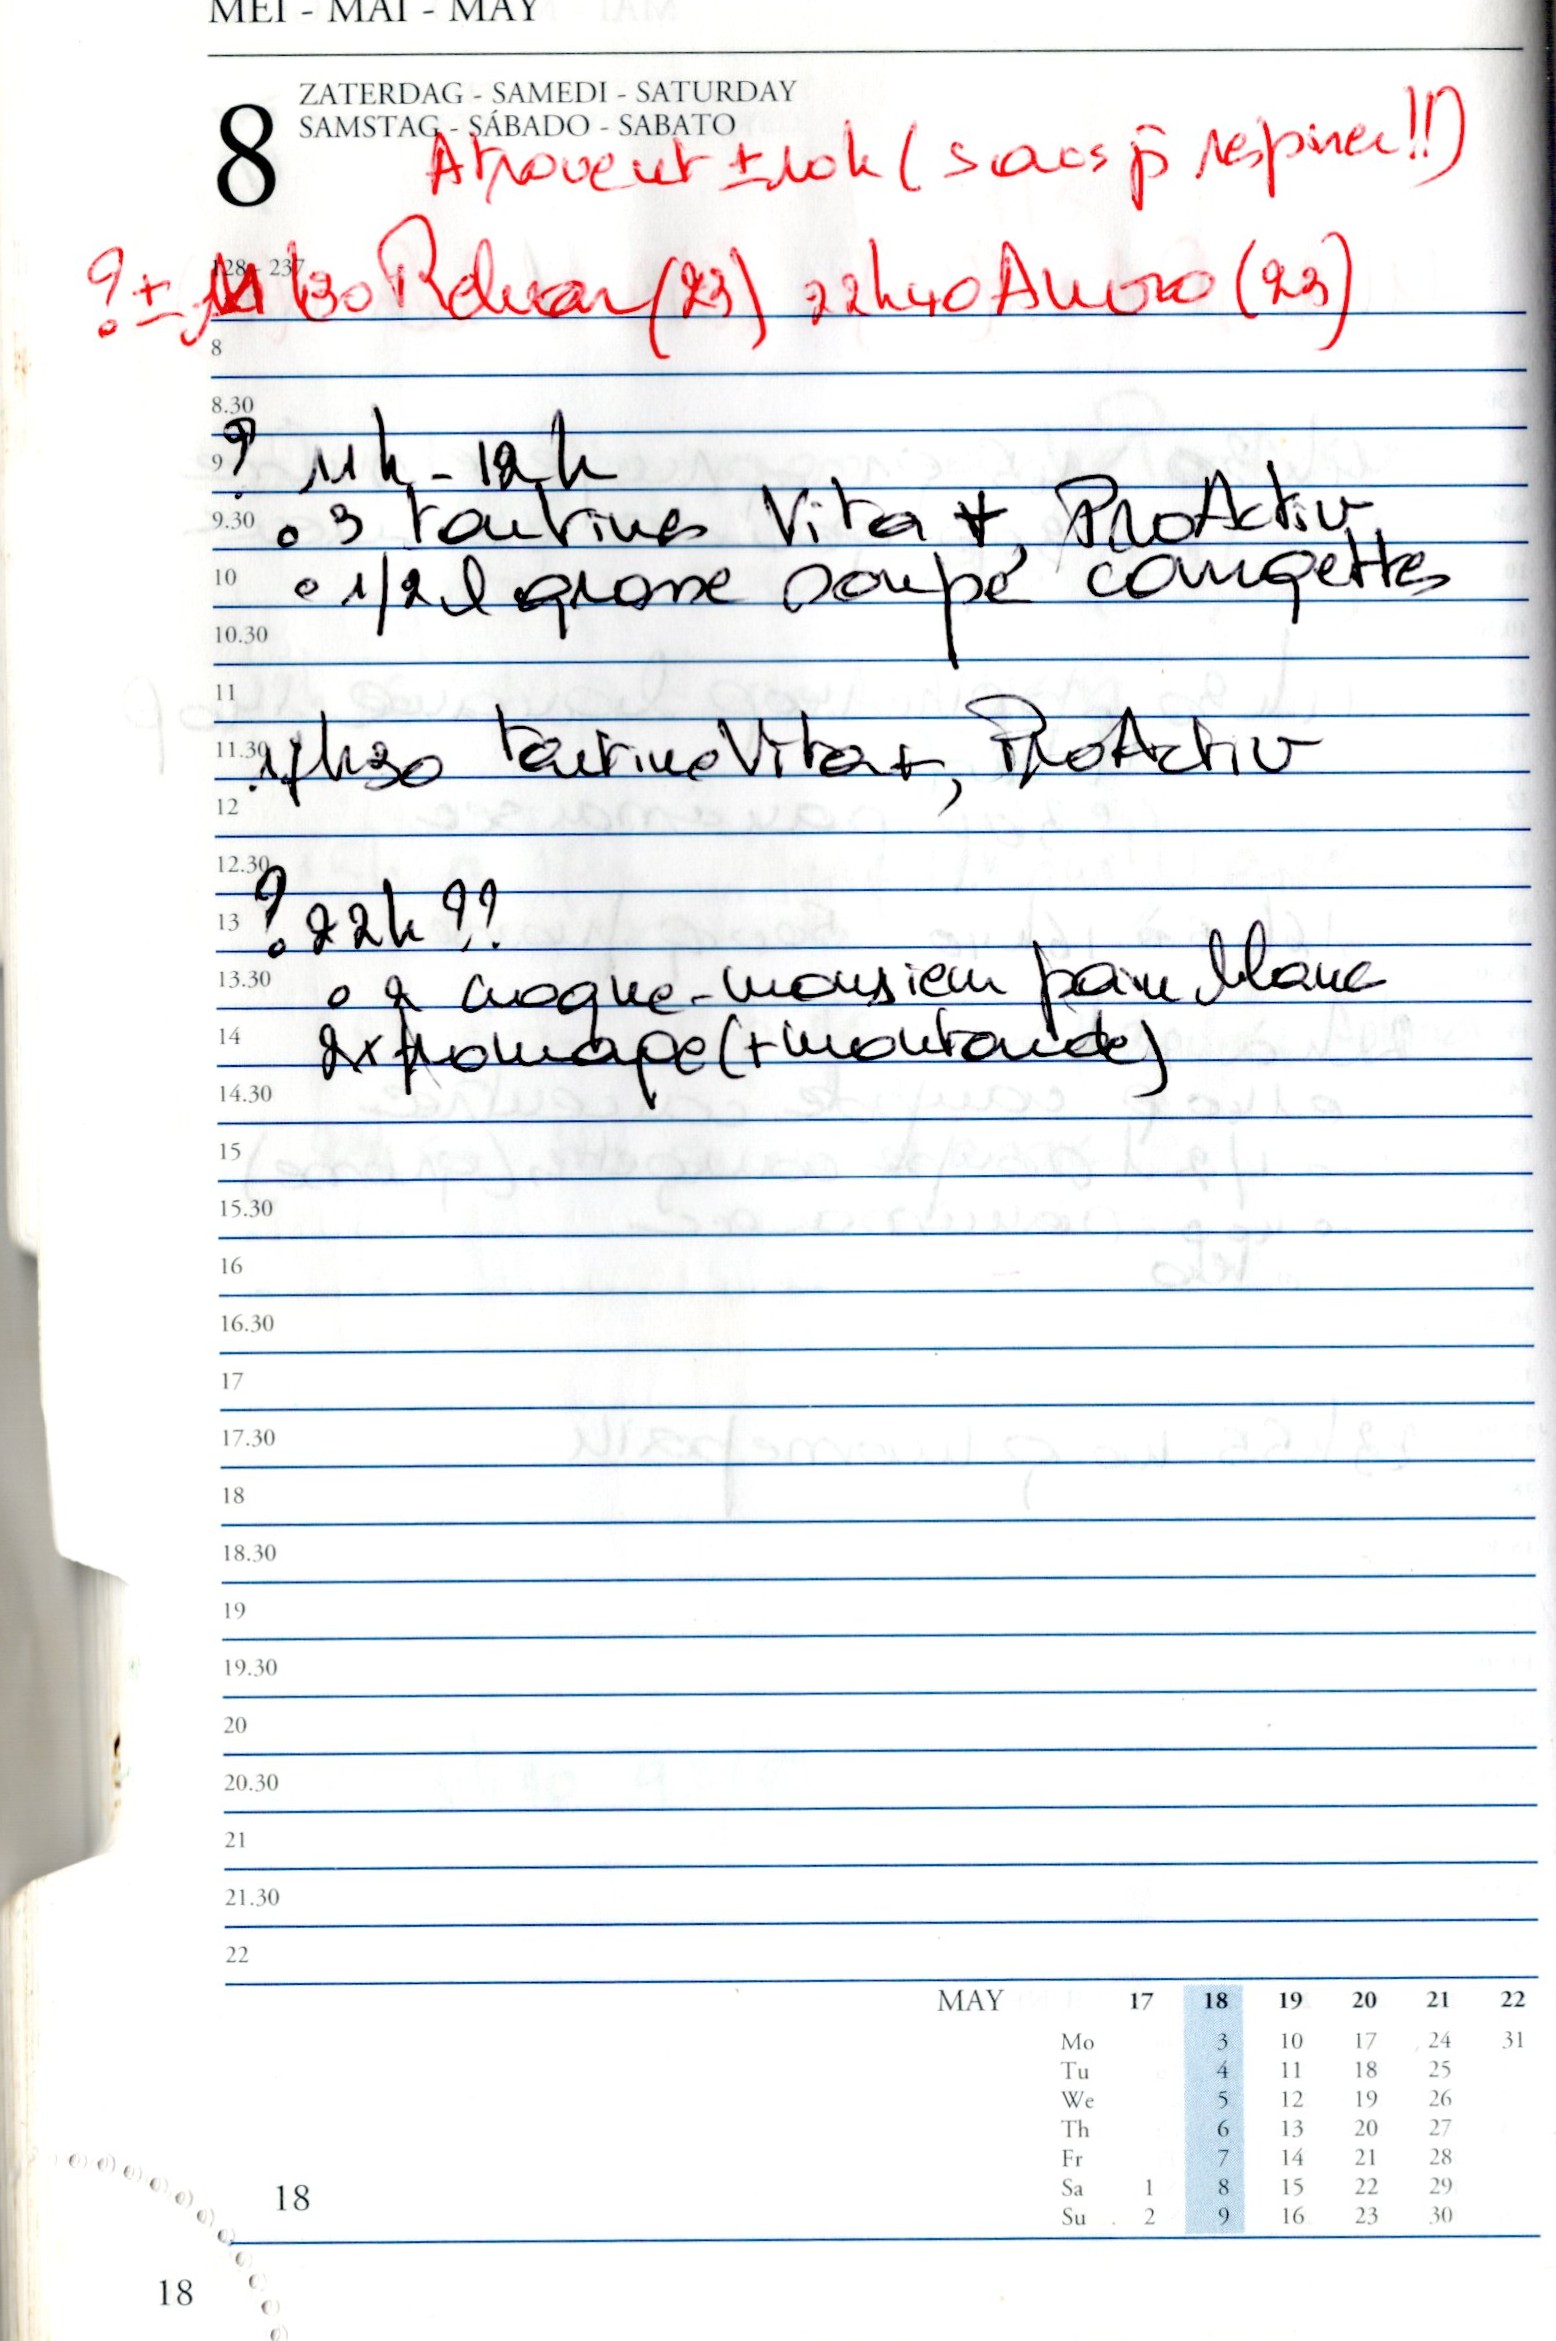 MEI - MAI - MAY
8
ZATERDAG - SAMEDI - SATURDAY
SAMSTAG - SÁBADO - SABATO
Atrovent ± 10h (sans respirer!!)
128 - 237
? ± 11h30 (23) 22h40 (23)
8
8.30
? 11h - 12h
9
9.30 • 3 tartines Vita +, ProActiv
10 • 1/2 l grosse soupe courgettes
10.30
11
11.30 17h30 tartine Vita+, ProActiv
12
12.30
13 ? 22h ??
13.30 • 2 croque-monsieur pain blanc
14 2x fromage (+ moutarde)
14.30
15
15.30
16
16.30
17
17.30
18
18.30
19
19.30
20
20.30
21
21.30
22
MAY 17 18 19 20 21 22
Mo 3 10 17 24 31
Tu 4 11 18 25
We 5 12 19 26
Th 6 13 20 27
Fr 7 14 21 28
Sa 1 8 15 22 29
Su 2 9 16 23 30
18
18